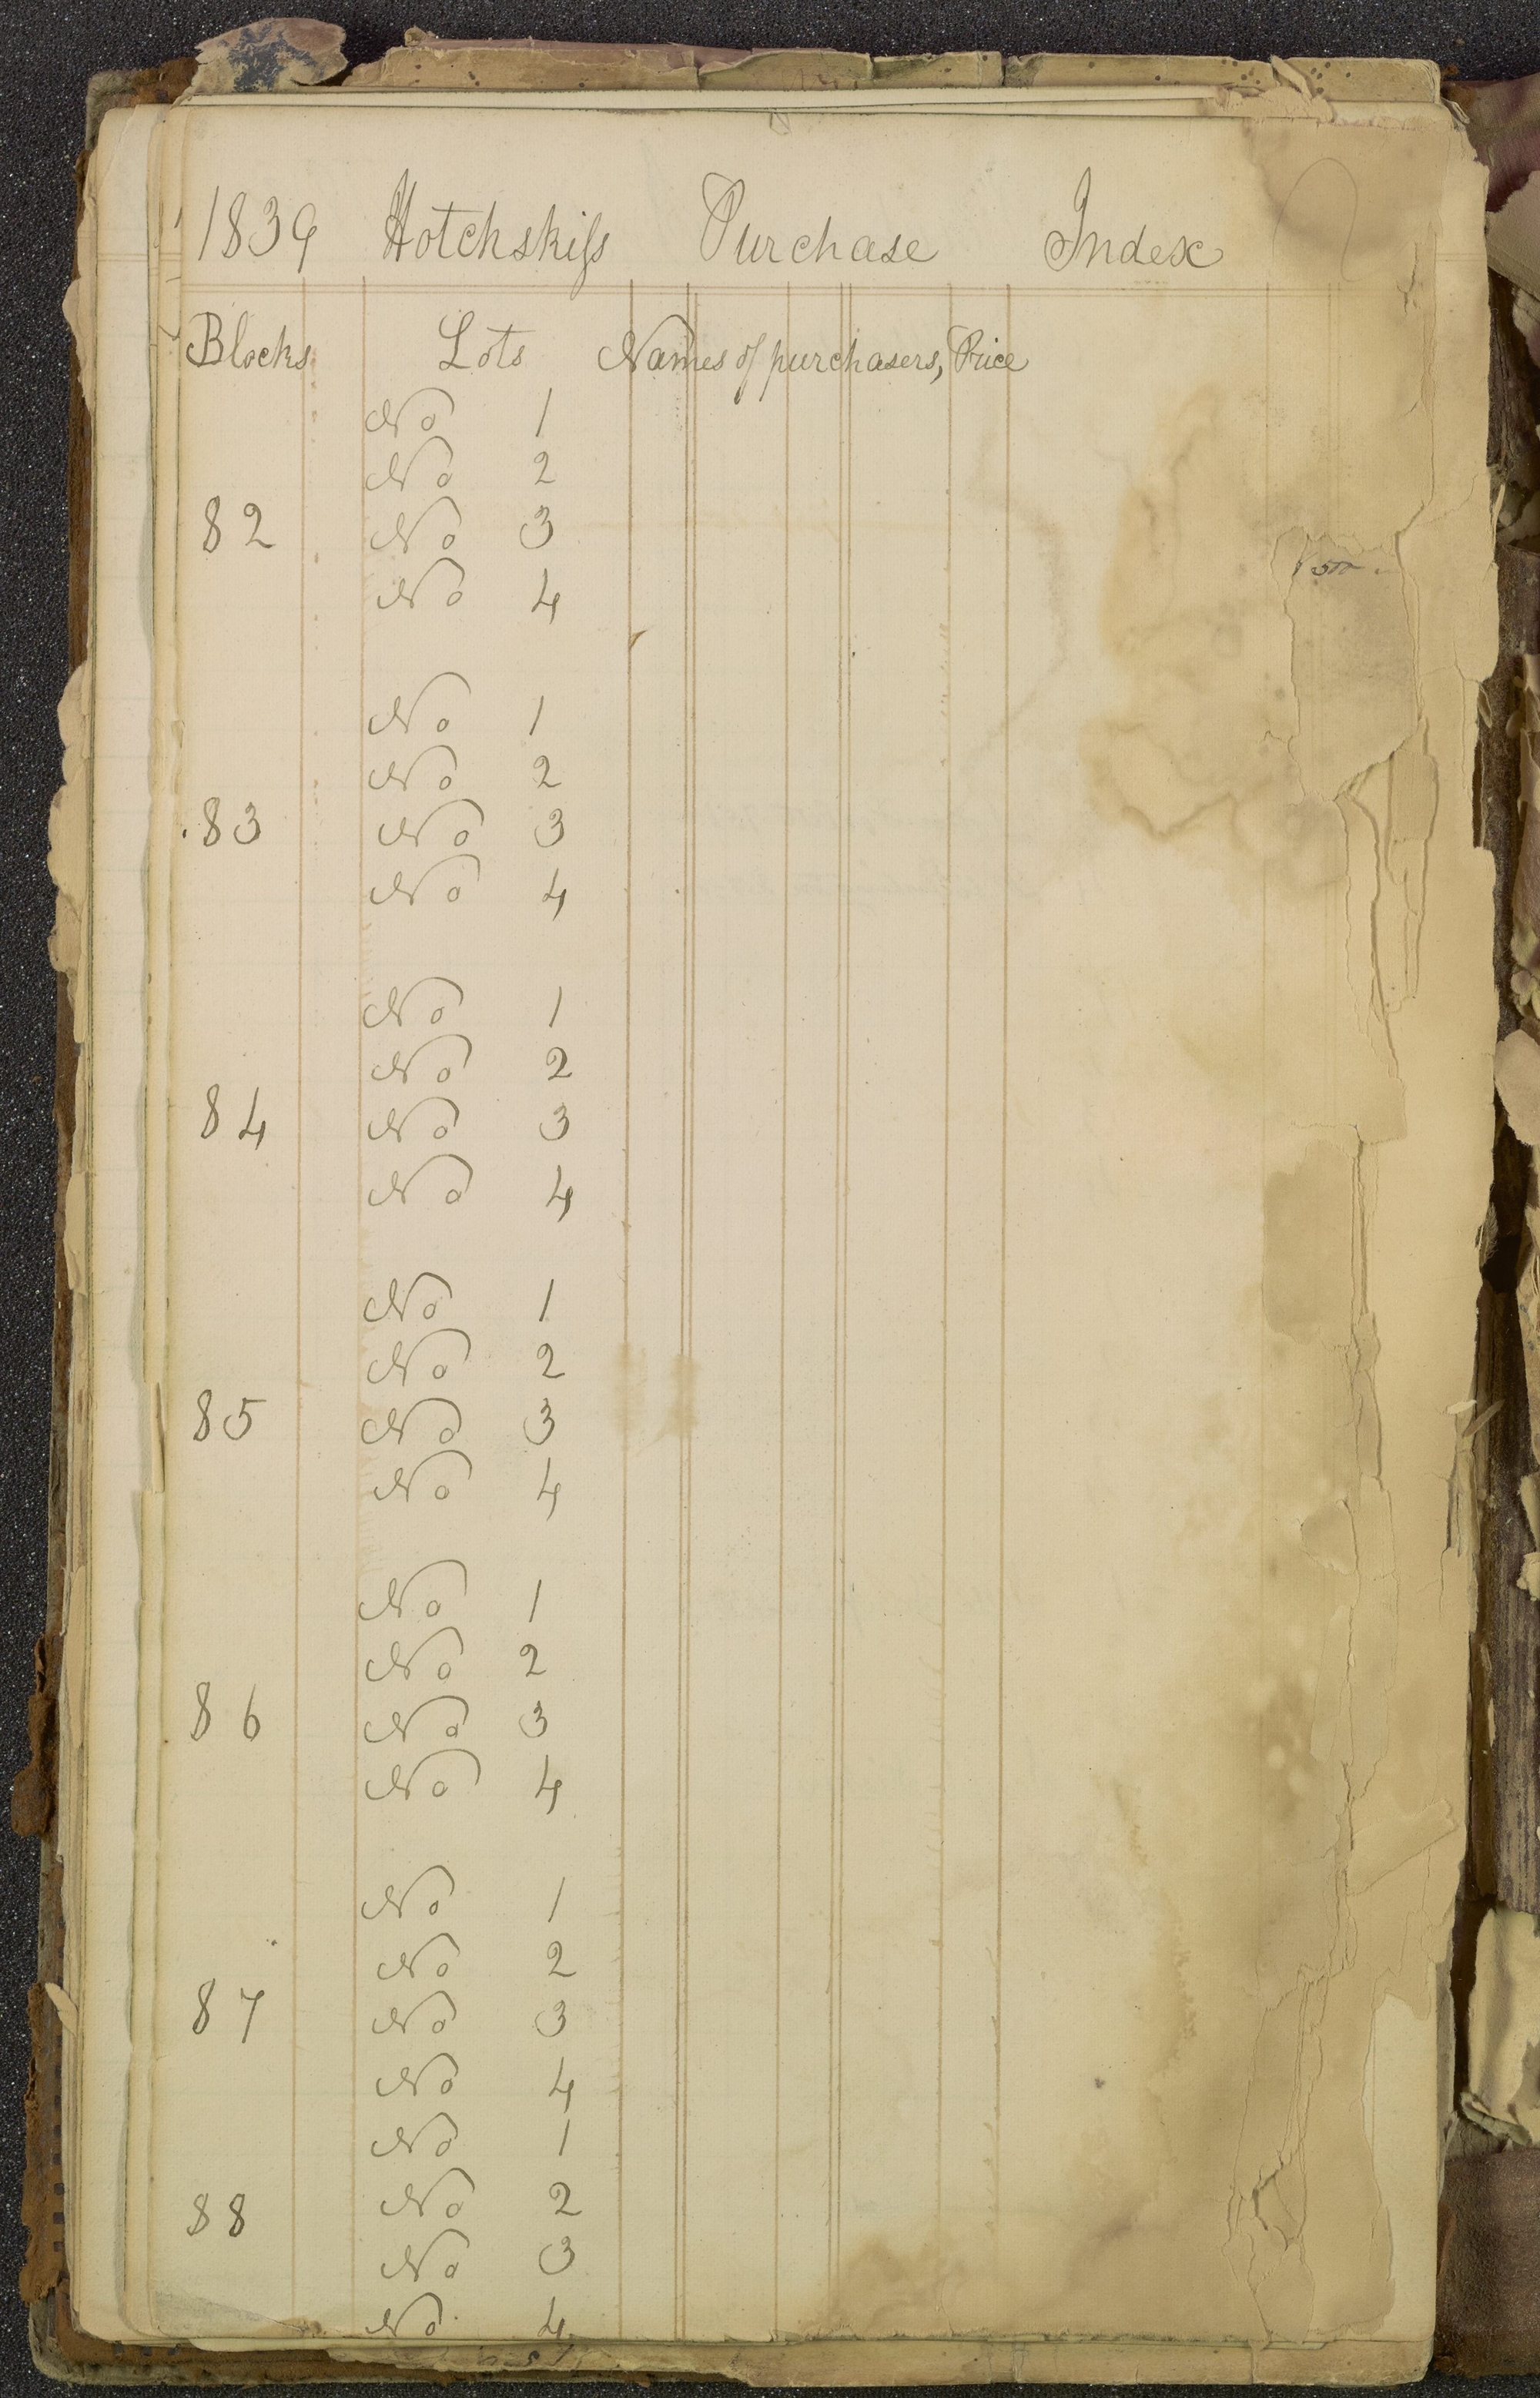 1839 Hotchskiss Purchase Index
Blocks Lots Names of purchasers, Price
No 1
No 2
82 No 3
No 4
No 1
No 2
83 No 3
No 4
No 1
No 2
84 No 3
No 4
No 1
No 2
85 No 3
No 4
No 1
No 2
86 No 3
No 4
No 1
No 2
87 No 3
No 4
No 1
88 No 2
No 3
No 4